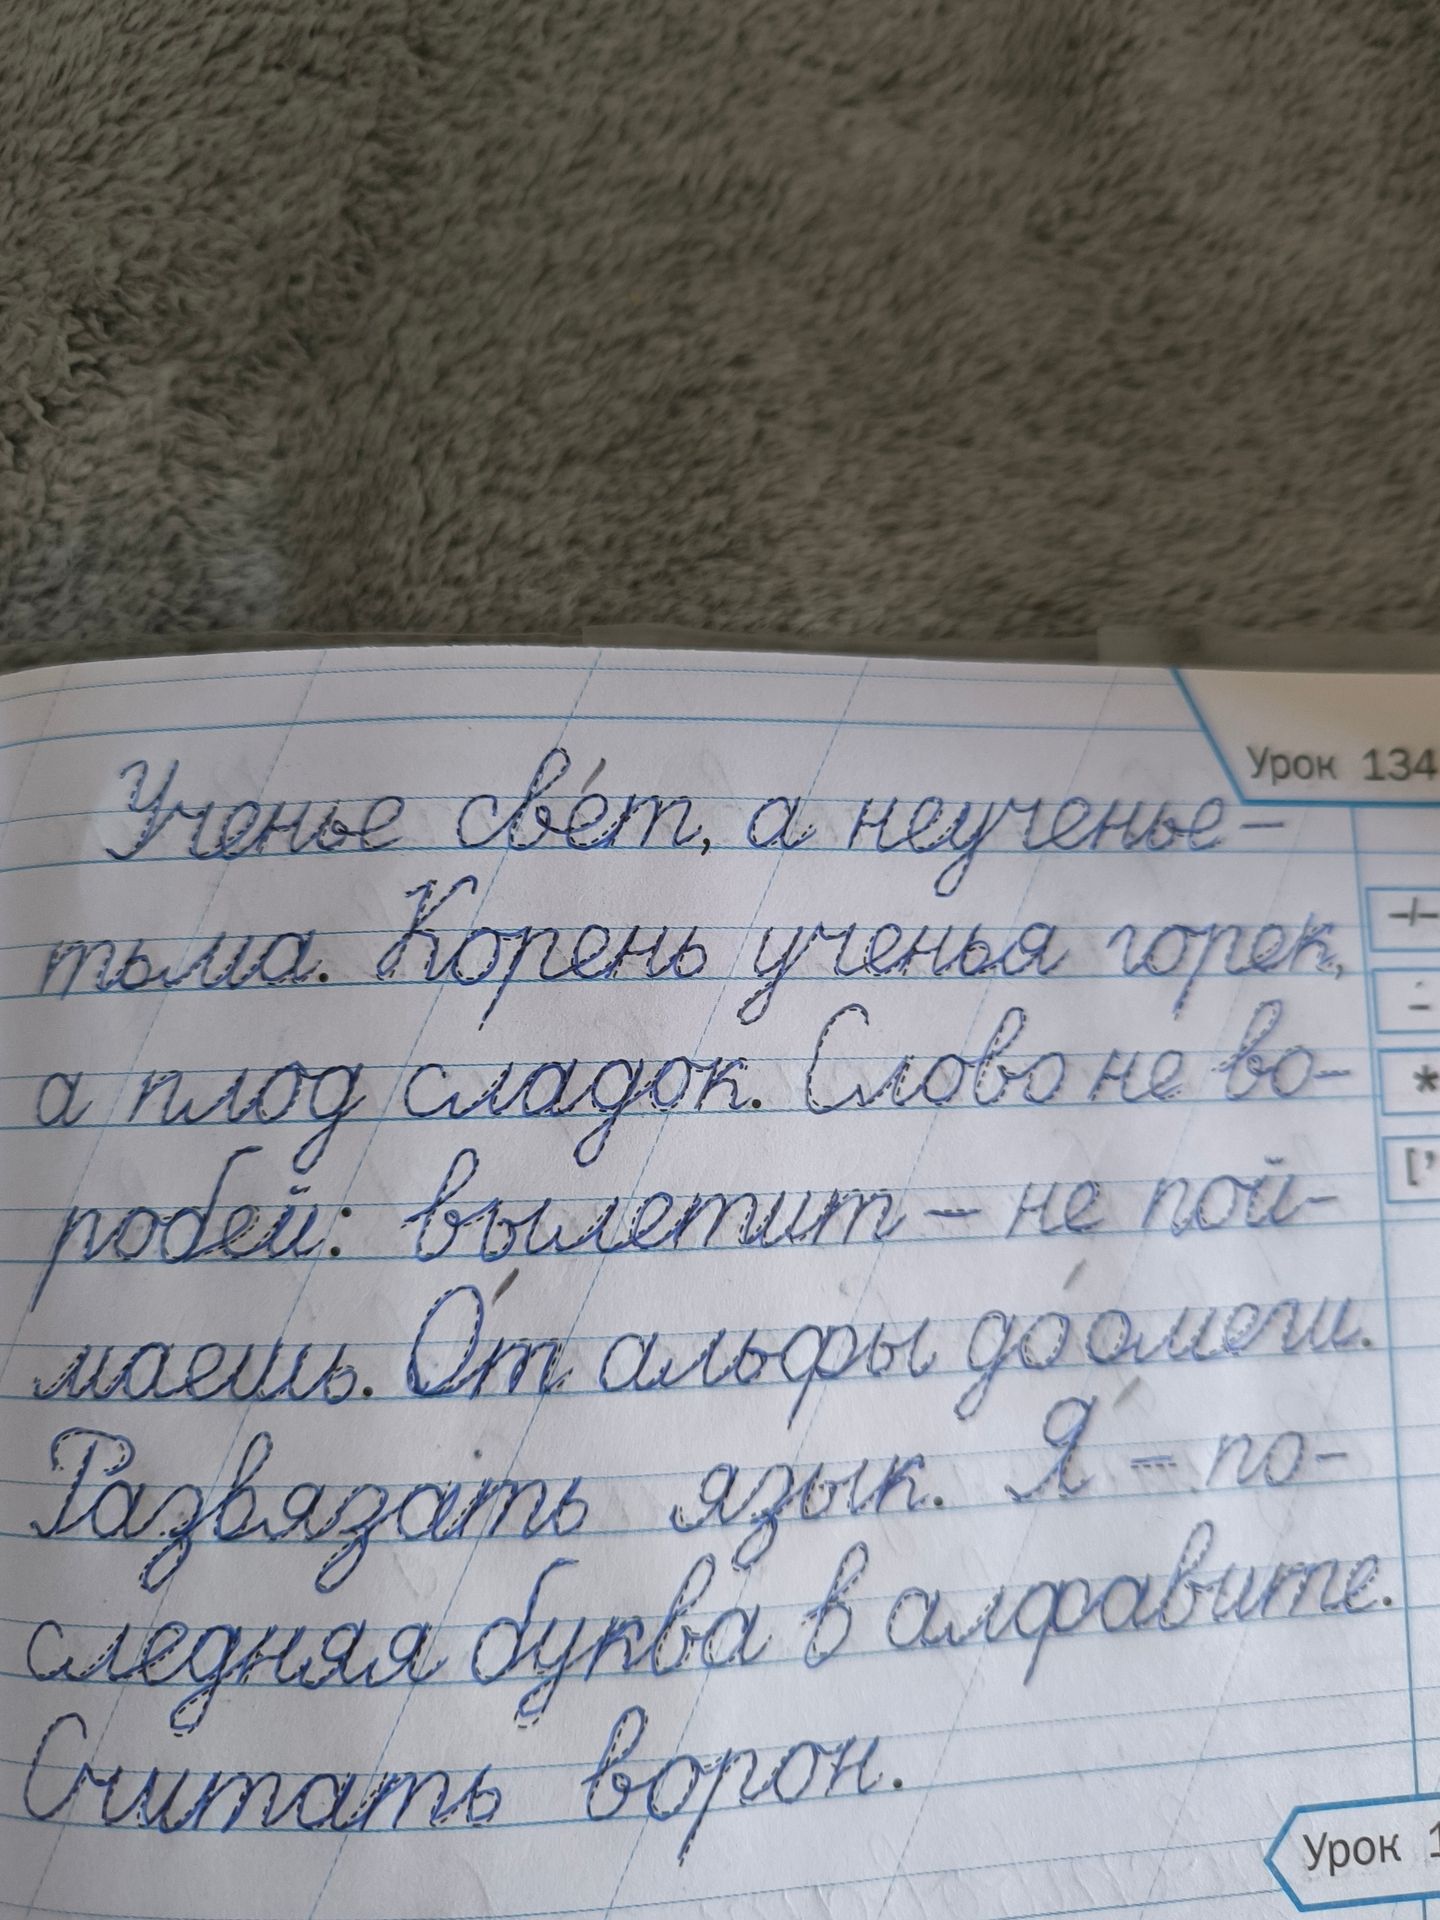 Урок 134
Ученье све́т, а неученье –
тьма. Корень ученья горек,
а плод сладок. Слово не во-
робей: вылетит – не пой-
маешь. О́т альфы до́ омеги.
Развязать язык. Я́ – по-
следняя буква в алфавите.
Считать ворон.
Урок 1